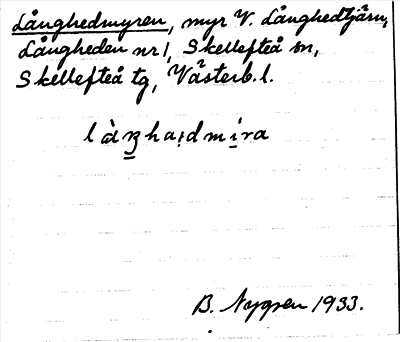 Långhedmyren, myr V. Långhedtjärn,
Långheden nr 1, Skellefteå sn,
Skellefteå tg, Västerb. l.
B. Nygren 1933.